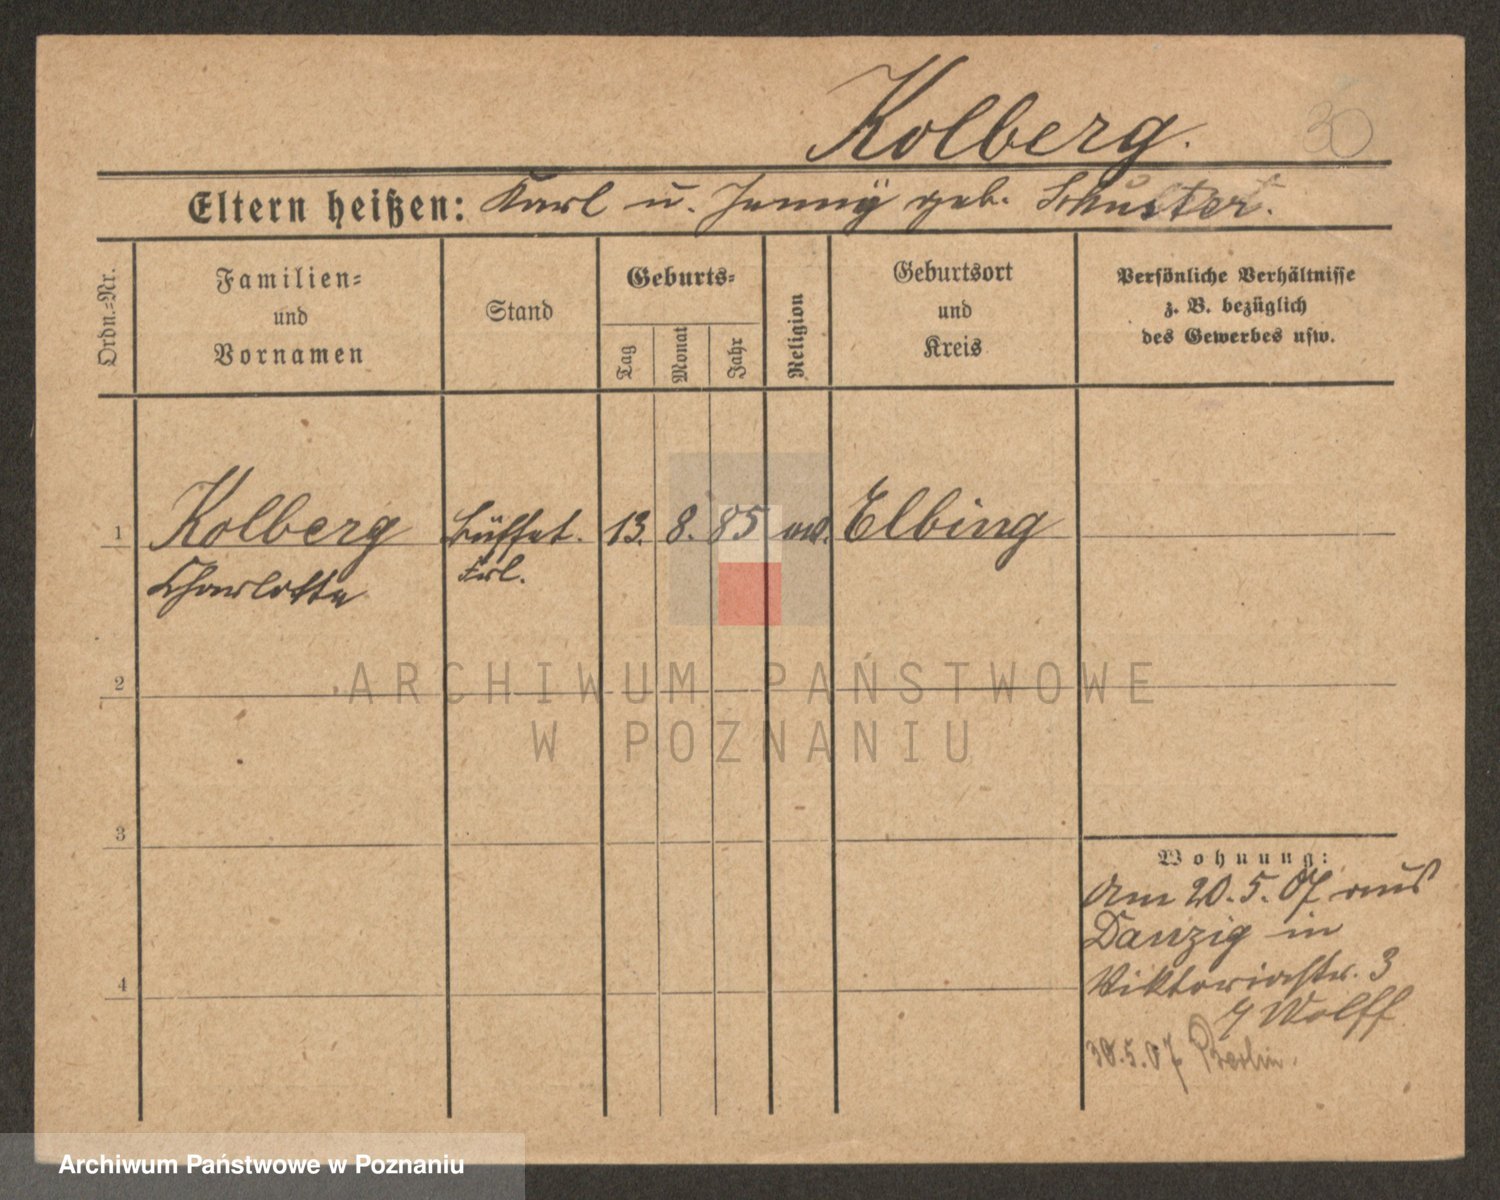 Kolberg.
30
Eltern heißen: Karl u. Jenny geb. Schuster.
Ordn.=Nr.
Familien=
und
Vornamen
Stand
Geburts=
Tag
Monat
Jahr
Religion
Geburtsort
und
Kreis
Persönliche Verhältnisse
z. B. bezüglich
des Gewerbes usw.
1 Kolberg Büffet. 13. 8. 85 ev. Elbing
Charlotte Frl.
2
3
4
Wohnung:
Am 20.5.07 aus
Danzig in
Viktoriastr. 3
b/ Wolff
30.5.07 Berlin.
ARCHIWUM PAŃSTWOWE
W POZNANIU
Archiwum Państwowe w Poznaniu